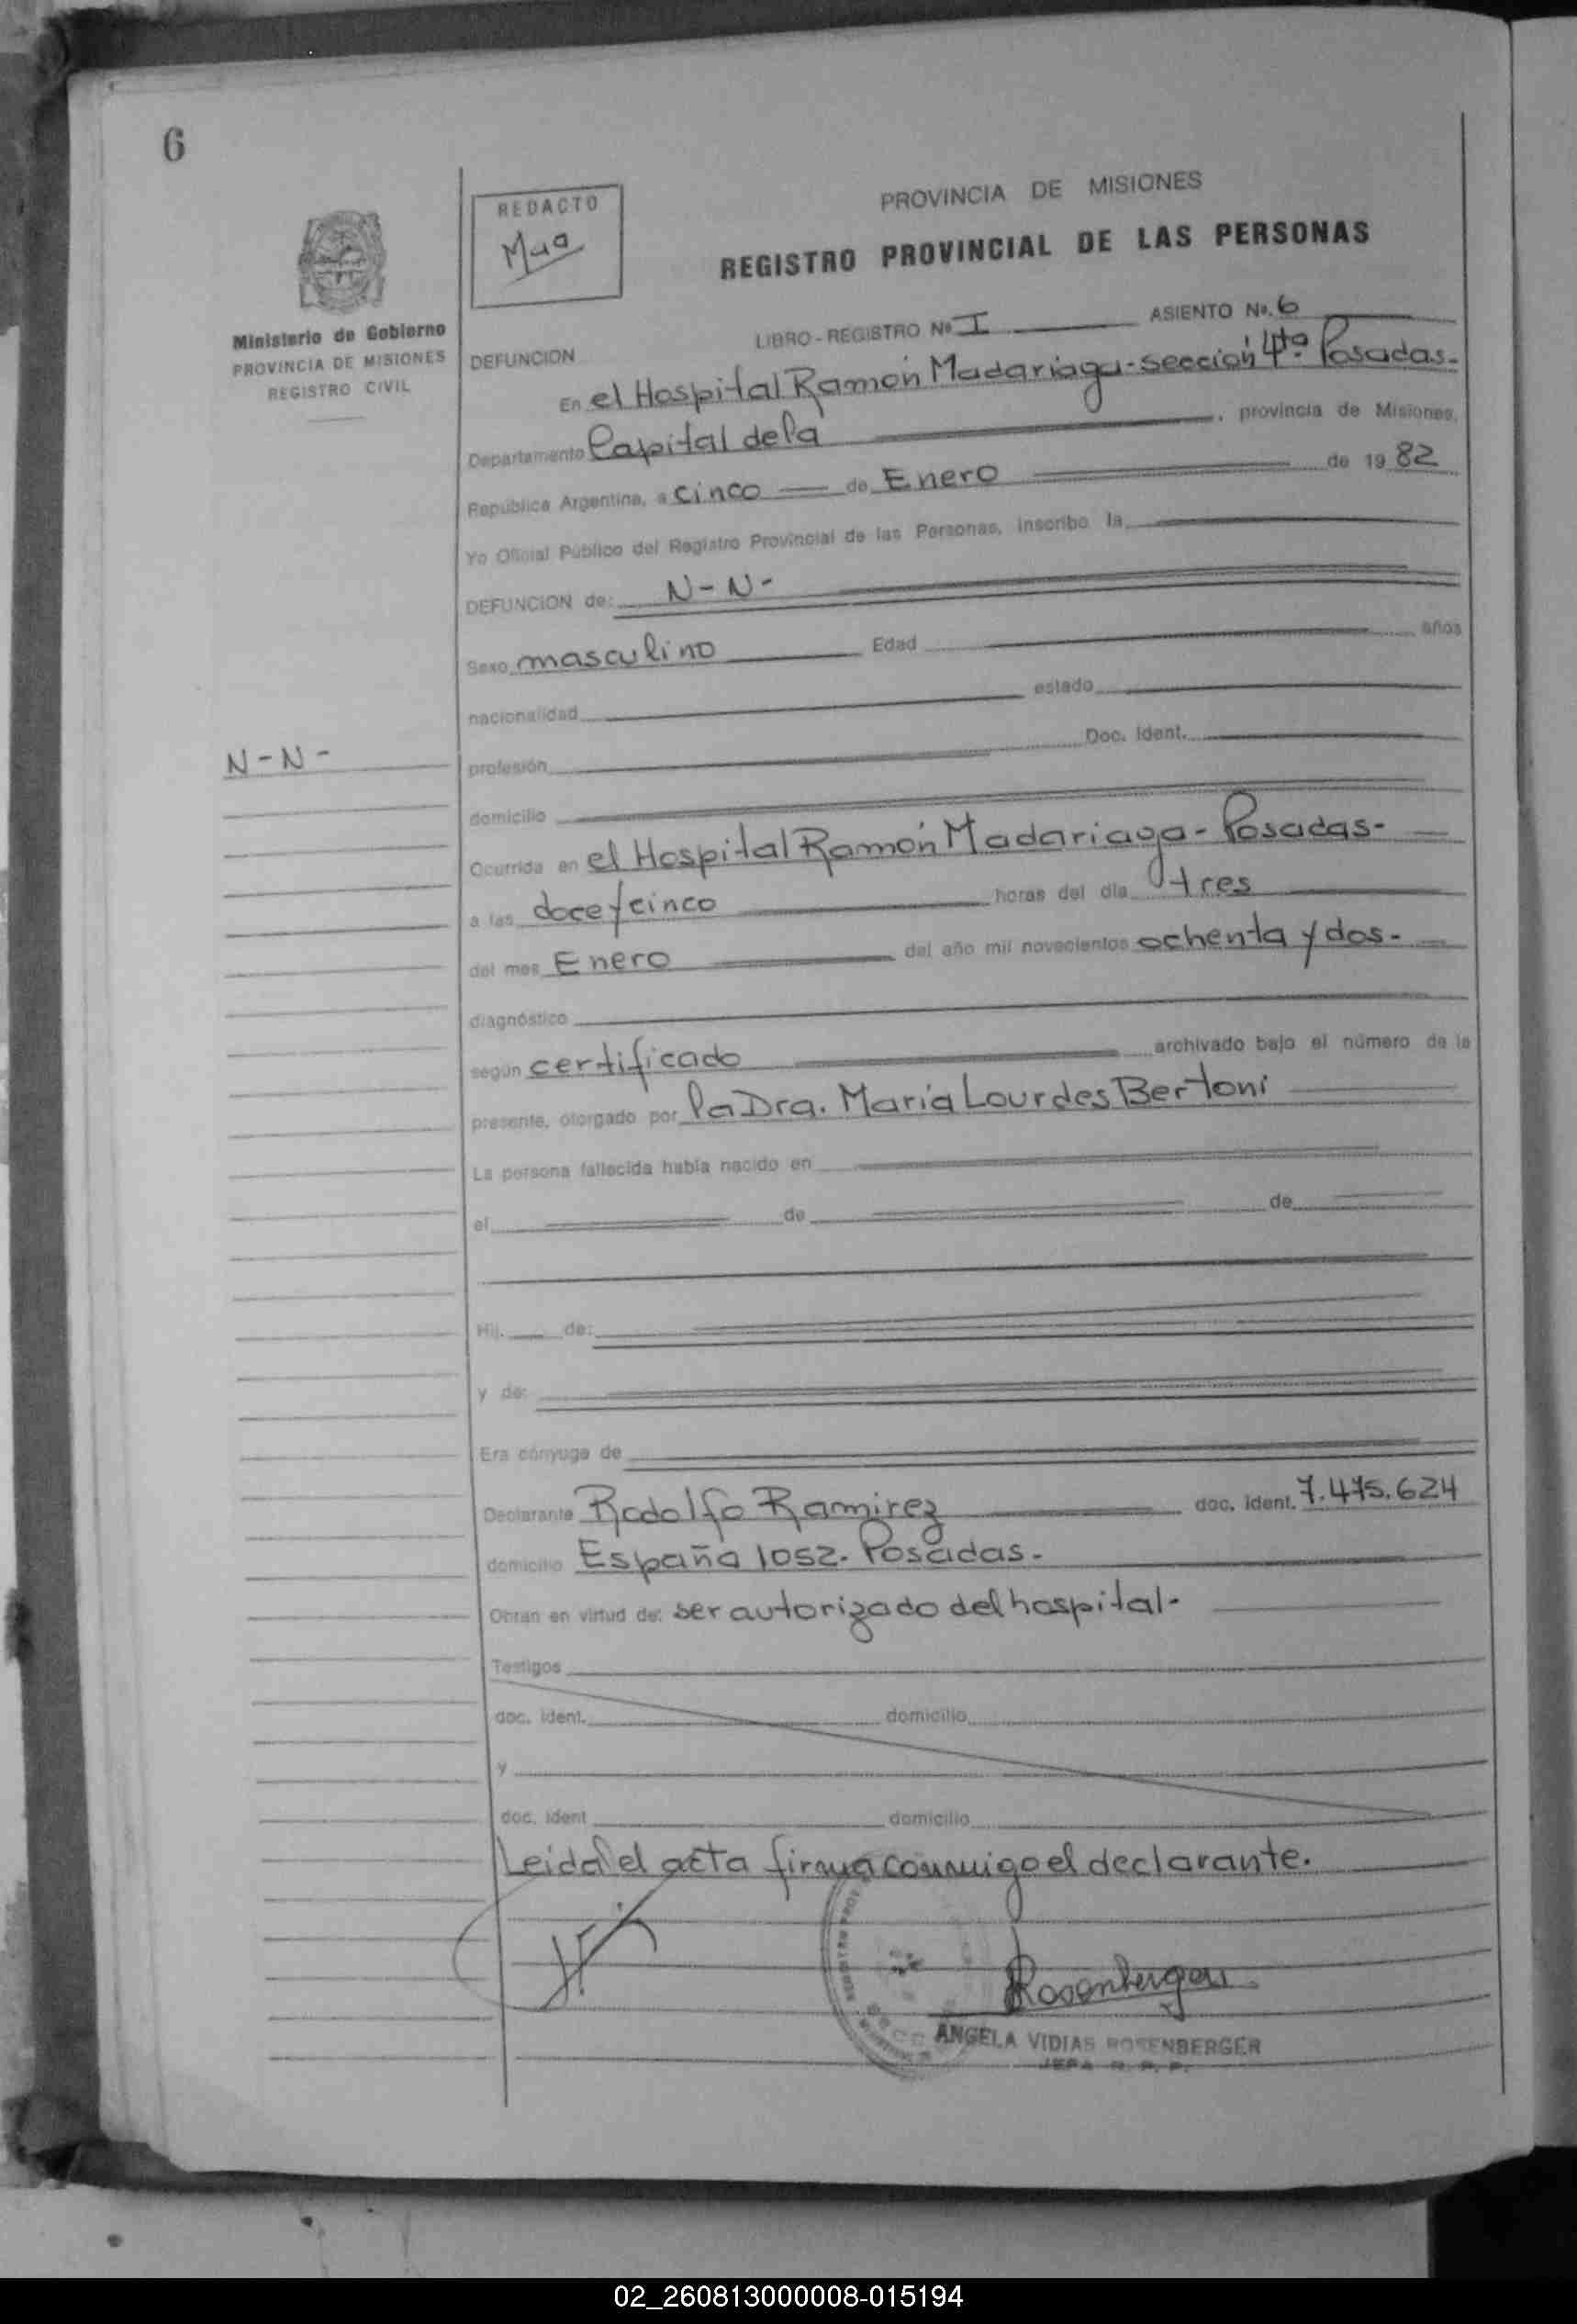 6
REDACTO
PROVINCIA DE MISIONES
REGISTRO PROVINCIAL DE LAS PERSONAS
Ministerio de Gobierno
PROVINCIA DE MISIONES
REGISTRO CIVIL
LIBRO - REGISTRO No I ASIENTO No. 6
DEFUNCION
En el Hospital Ramón Madariaga - sección 4ta Posadas -
Departamento Capital de la, provincia de Misiones,
República Argentina, a cinco de Enero de 19 82
Yo Oficial Público del Registro Provincial de las Personas, inscribo la
DEFUNCION de: N - N -
Sexo masculino Edad años
nacionalidad estado
N - N -
profesión Doc. Ident.
domicilio
Ocurrida en el Hospital Ramón Madariaga - Posadas -
a las doce y cinco horas del día tres
del mes Enero del año mil novecientos ochenta y dos -
diagnóstico
según certificado archivado bajo el número de la
presente, otorgado por la Dra. María Lourdes Bertoni
La persona fallecida había nacido en
el de de
Hij. de:
y de:
Era cónyuge de
Declarante Rodolfo Ramirez doc. ident. 7.475.624
domicilio España 1052. Posadas -
Obran en virtud de: ser autorizado del hospital -
Testigos
doc. ident. domicilio
y
doc. ident domicilio
Leida el acta firma conmigo el declarante.
Rosenberger
ANGELA VIDIAS ROSENBERGER
JEFA R. P. P.
02_260813000008-015194